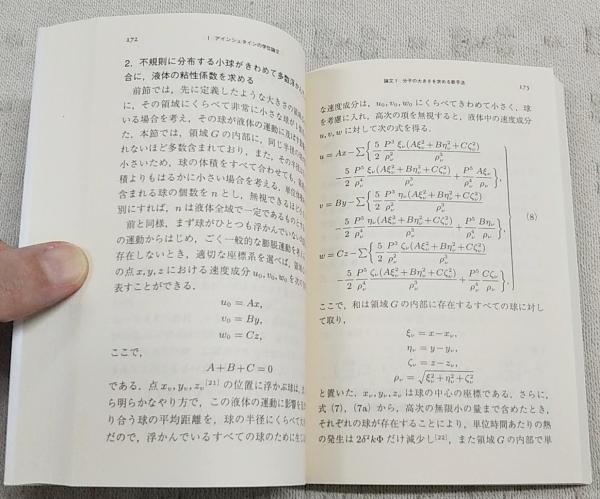 172
I アインシュタインの学位論文
2. 不規則に分布する小球がきわめて多数浮か
合に，液体の粘性係数を求める
前節では，先に定義したような大きさの領域
に，その領域にくらべて非常に小さな球が
いる場合を考え，その球が液体の運動に及ぼす
た．本節では，領域 G の内部に，同じ半径の球
れないほど多数含まれており，また，その半径は
小さいため，球の体積をすべて合わせても，
積よりもはるかに小さい場合を考える．単位体積
含まれる球の個数を n とし，無視できるほど
別にすれば，n は液体全域で一定であるものと
前と同様，まず球がひとつも浮かんでいない
の運動からはじめ，ごく一般的な膨脹運動を
存在しないとき，適切な座標系を選べば，領域
の点 x, y, z における速度成分 u₀, v₀, w₀ を次
表すことができる．
u₀ = Ax,
v₀ = By,
w₀ = Cz,
ここで，
A+B+C = 0
である．点 xᵥ, yᵥ, zᵥ[21] の位置に浮かぶ球は，
ら明らかなやり方で，この液体の運動に影響を
り合う球の平均距離を，球の半径にくらべて
だので，浮かんでいるすべての球のために生じ
論文1 分子の大きさを求める新手法
173
な速度成分は，u₀, v₀, w₀ にくらべてきわめて小さく，球
を考慮に入れ，高次の項を無視すると，液体中の速度成分
u, v, w に対して次の式を得る．
u = Ax−∑{5/2 P³/ρᵥ² ξᵥ(Aξᵥ²+Bηᵥ²+Cζᵥ²)/ρᵥ³
−5/2 P⁵/ρᵥ⁴ ξᵥ(Aξᵥ²+Bηᵥ²+Cζᵥ²)/ρᵥ³ + P⁵/ρᵥ⁴ Aξᵥ/ρᵥ},
v = By−∑{5/2 P³/ρᵥ² ηᵥ(Aξᵥ²+Bηᵥ²+Cζᵥ²)/ρᵥ³
−5/2 P⁵/ρᵥ⁴ ηᵥ(Aξᵥ²+Bηᵥ²+Cζᵥ²)/ρᵥ³ + P⁵/ρᵥ⁴ Bηᵥ/ρᵥ},
(8)
w = Cz−∑{5/2 P³/ρᵥ² ζᵥ(Aξᵥ²+Bηᵥ²+Cζᵥ²)/ρᵥ³
−5/2 P⁵/ρᵥ⁴ ζᵥ(Aξᵥ²+Bηᵥ²+Cζᵥ²)/ρᵥ³ + P⁵/ρᵥ⁴ Cζᵥ/ρᵥ},
ここで，和は領域 G の内部に存在するすべての球に対し
て取り，
ξᵥ = x−xᵥ,
ηᵥ = y−yᵥ,
ζᵥ = z−zᵥ,
ρᵥ = √(ξᵥ²+ηᵥ²+ζᵥ²)
と置いた．xᵥ, yᵥ, zᵥ は球の中心の座標である．さらに，
式 (7)，(7a) から，高次の無限小の量まで含めたとき，
それぞれの球が存在することにより，単位時間あたりの熱
の発生は 2δ²kΦ だけ減少し[22]，また領域 G の内部で単